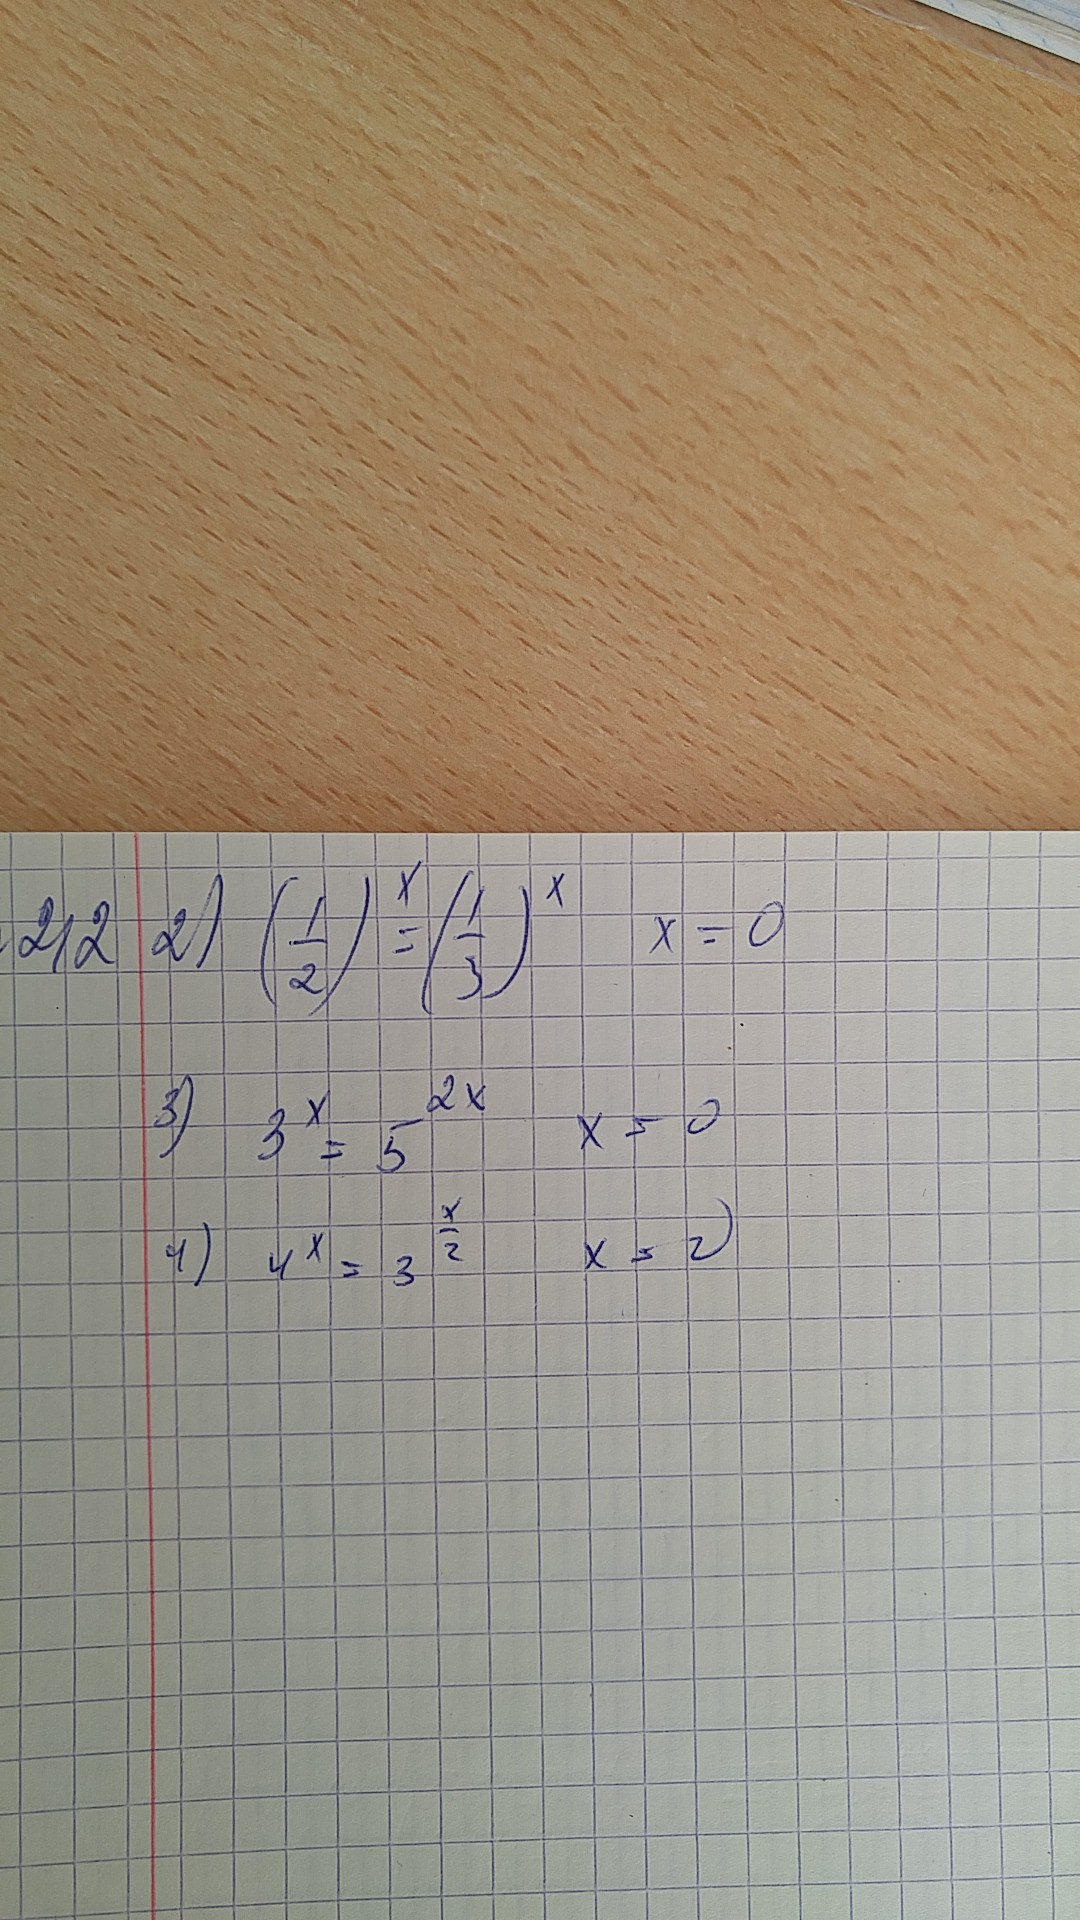 212 2) (1/2)^x = (1/3)^x x = 0
3) 3^x = 5^2x x = 0
4) 4^x = 3^x/2 x = 2